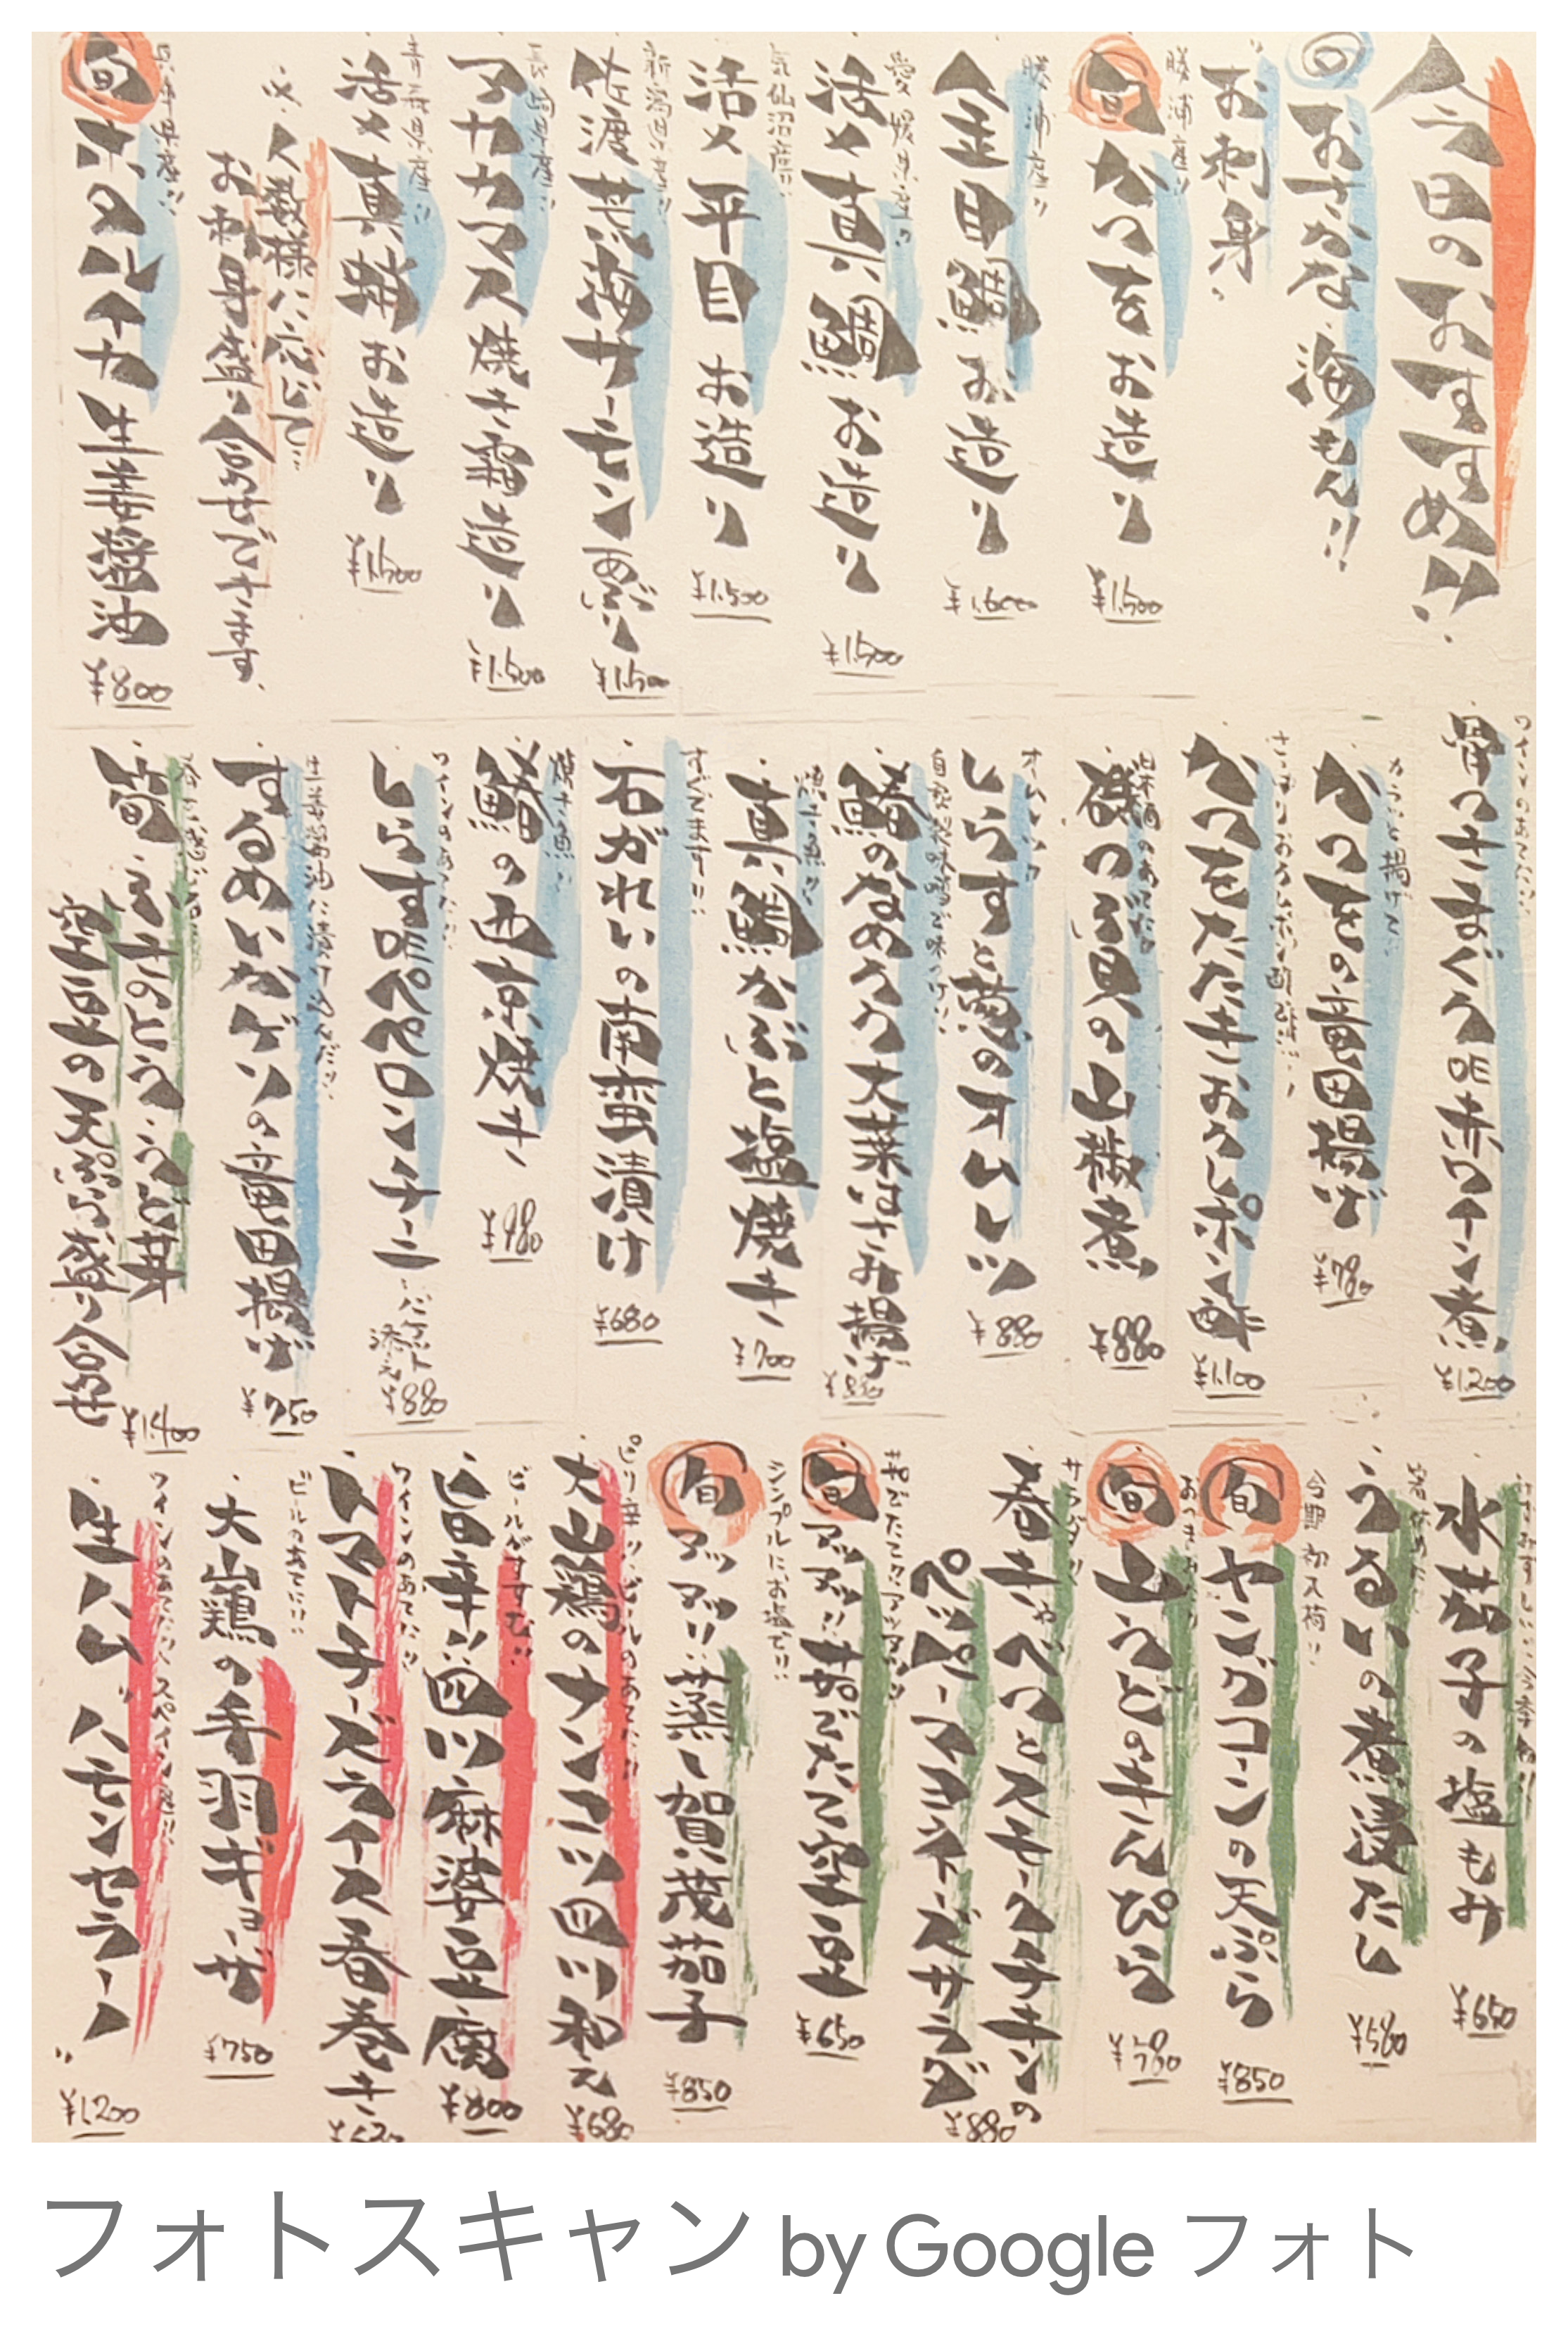 今日のおすすめ!!
旬おさかな 海もん!!
お刺身
勝浦産!!
旬かつをお造り ¥1,500
勝浦産!!
金目鯛お造り ¥1,600
愛媛県産!!
活〆真鯛お造り ¥1,500
気仙沼産!!
活〆平目お造り ¥1,500
新潟県産!!
佐渡荒海サーモン炙り ¥1,500
長崎県産!!
アカカマス焼き霜造り ¥1,500
青森県産!!
活〆真鯒お造り ¥1,500
※人数様に応じて…
お刺身盛り合わせできます、
兵庫県産!!
旬ホタルイカ生姜醤油 ¥800
ワインのあてに!!
骨つきまぐろDE赤ワイン煮 ¥1,200
カラッと揚げて!!
かつをの竜田揚げ ¥780
かつをたたきおろしポン酢 ¥1,100
日本酒のあてに!!
磯つぶ貝の山椒煮 ¥880
しらすと葱のオムレツ ¥880
自家製味噌で味つけ!!
鰆のなめろう大葉はさみ揚げ ¥880
焼き魚!!
真鯛かぶと塩焼き ¥700
すぐでます!!
石がれいの南蛮漬け ¥680
焼き魚!!
鰆の西京焼き ¥980
ワインのあてに!!
しらすDEペペロンチーニ バケット添え ¥880
生姜醤油に漬け込んだ!!
するめいかげその竜田揚げ ¥750
筍・ふきのとう・うど芽
空豆の天ぷら盛り合わせ ¥1,400
みずみずしい!!今季初!!
水茄子の塩もみ ¥650
箸休めに!!
うるいの煮浸だし ¥580
今期初入荷!!
旬ヤングコーンの天ぷら ¥850
おつまみに!!
旬山うどのきんぴら ¥780
サラダ!!
春キャベツとスモークチキンの
ペッパーマヨチーズサラダ ¥880
茹でたてアツアツ!!
旬アツアツ!!茹でたて空豆 ¥650
シンプルにお塩で!!
旬アツアツ!!蒸し賀茂茄子 ¥850
ピリ辛!!ビールのあてに!!
大山鶏のナンコツ四川和え ¥680
ビールがすすむ!!
旨辛!!四川麻婆豆腐 ¥800
ワインのあてに!!
トマトチーズライス春巻き ¥620
ビールのあてに!!
大山鶏の手羽ギョーザ ¥750
ワインのあてに!!スペイン産!!
生ハム"ハモンセラーノ" ¥1,200
フォトスキャン by Google フォト